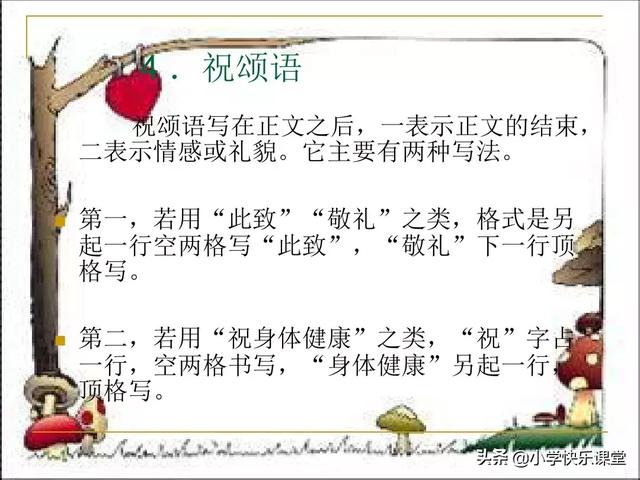 4．祝颂语
祝颂语写在正文之后，一表示正文的结束，
二表示情感或礼貌。它主要有两种写法。
第一，若用“此致”“敬礼”之类，格式是另
起一行空两格写“此致”，“敬礼”下一行顶
格写。
第二，若用“祝身体健康”之类，“祝”字占
一行，空两格书写，“身体健康”另起一行，
顶格写。
头条@小学快乐课堂